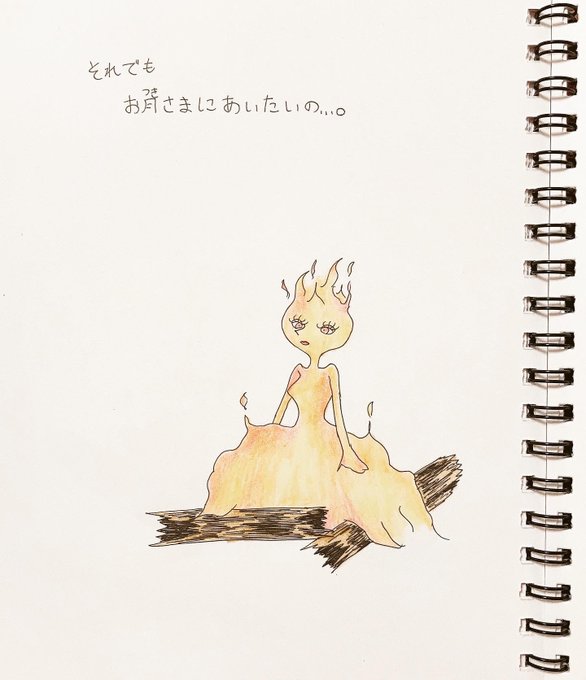 それでも
お月さまにあいたいの...。
つき